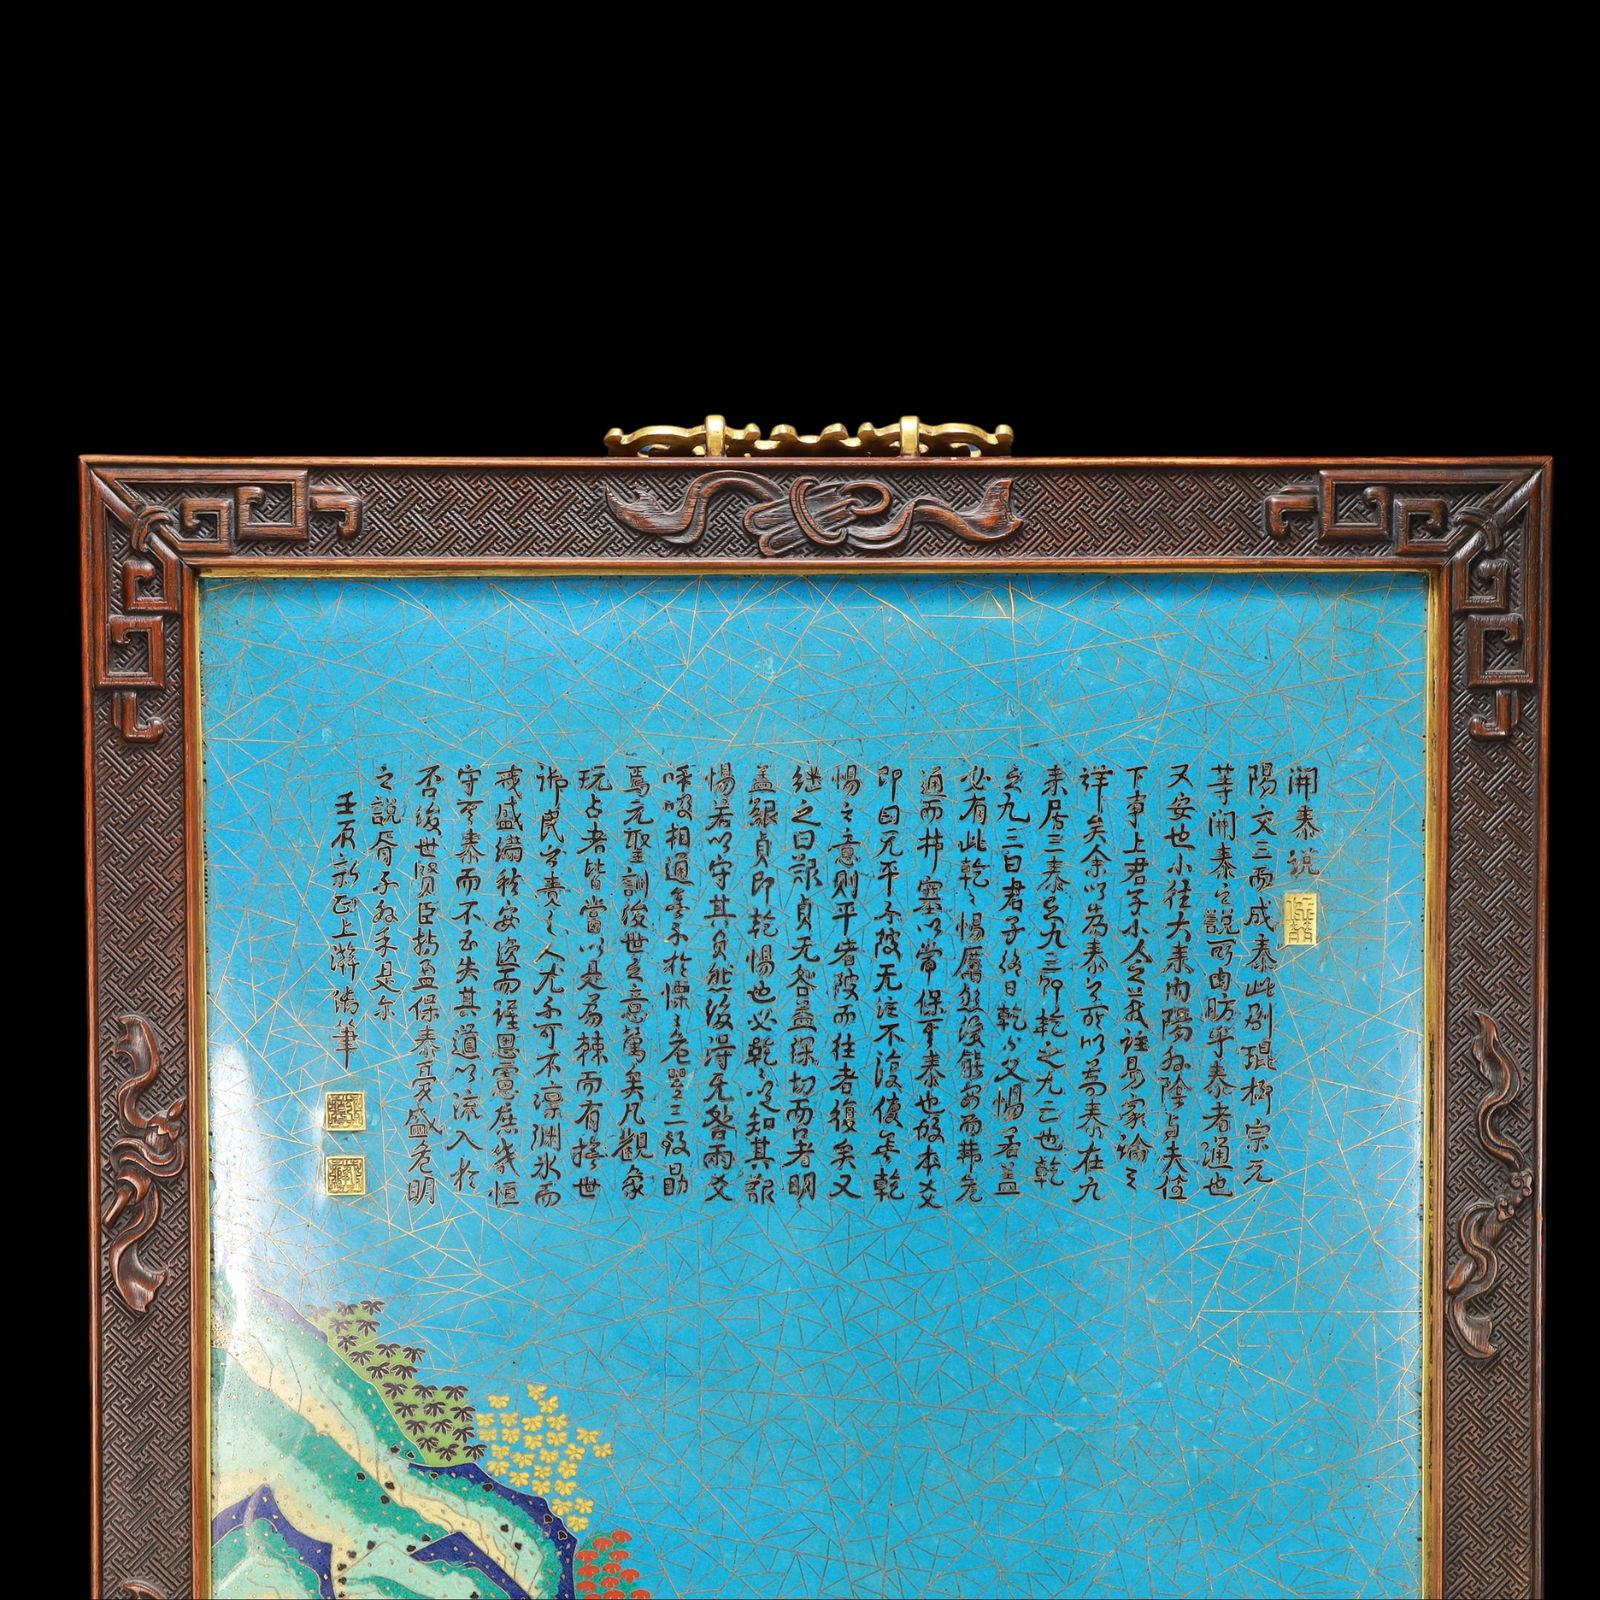 開泰説
陽交三而成泰此劉琨柳宗元
等開泰之説所由昉乎泰者通也
又安也小往大来内陽外陰貞夫位
下事上君子小人之義註易家論之
詳矣余以為泰之所以為泰在九
来居三泰之九三即乾之九三也乾
之九三曰君子終日乾夕又惕若盖
必有此乾乾惕厲然後能安而弗危
通而弗塞以常保至泰也故本爻
即曰无平不陂无往不復使無乾
惕之意則平者陂而往者復矣又
継之曰艱貞无咎益深切而著明
盖艱貞即乾惕也必乾乾以知其艱
惕若以守其貞然後得无咎兩爻
呼吸相通無不於慄慄危翼三致勗
焉元聖訓後世之意篤矣凡觀象
玩占者皆當以是為棘而有撫世
御民之責之人尤不可不凛淵冰而
戒盛滿於安㳄而謹思慮庶幾恒
守至泰而不至失其道以流入於
否後世賢臣持盈保泰憂盛危明
之説胥不外乎是尔
壬辰新正上澣御筆